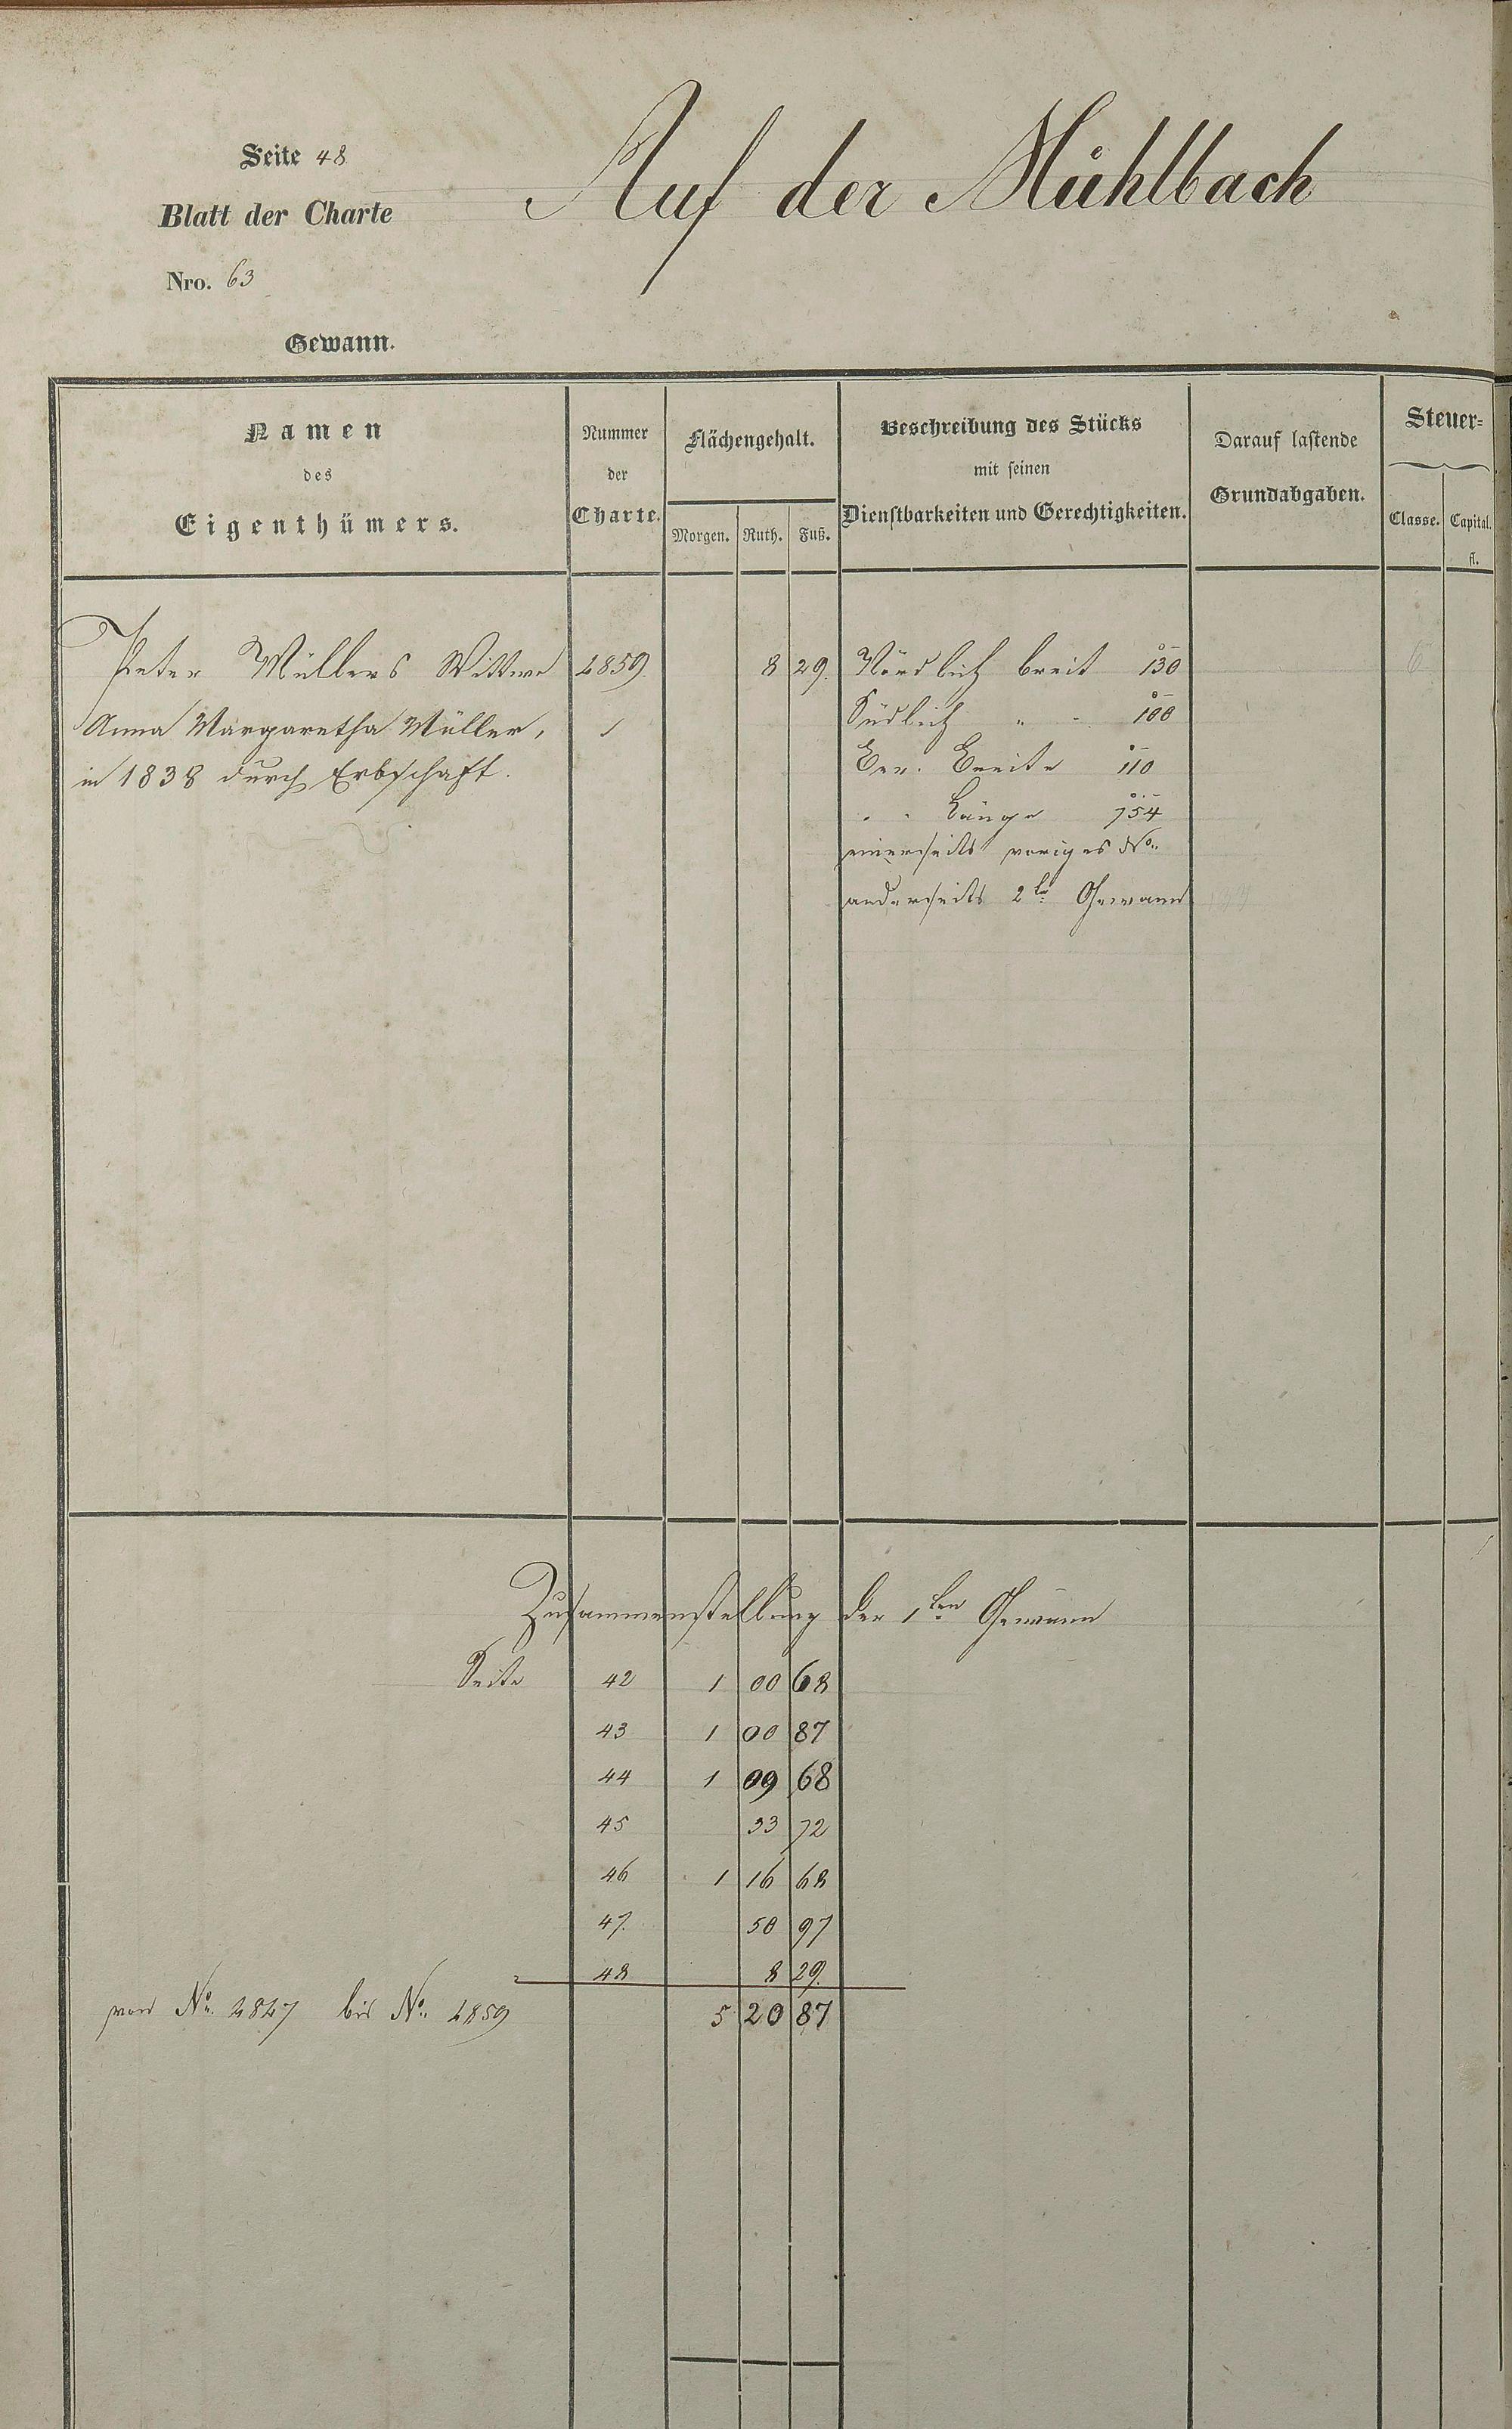 Seite 48
Auf der Mühlbach
Blatt der Charte
Nro. 63
Gewann.
Namen
des
Eigenthümers.
Nummer
der
Charte.
Flächengehalt.
Morgen. Ruth. Fuß.
Beschreibung des Stücks
mit seinen
Dienstbarkeiten und Gerechtigkeiten.
Darauf lastende
Grundabgaben.
Steuer=
Classe. Capital.
fl.
Peter Müllers Wittwe 4859. 8 29. Nördlich breit 130 6
Anna Margaretha Müller, 1 Südlich " - 100
in 1838 durch Erbschaft. Ber. Breite 110
" " Länge 754
einerseits voriges No.
anderseits 2te Gewann
Zusammenstellung der 1ten Gewann
Seite 42 1 00 68
43 1 00 87
44 1 09 68
45 33 72
46 1 16 68
47. 50 97
48 8 29.
von No. 4847 bis No. 4859 5 20 87